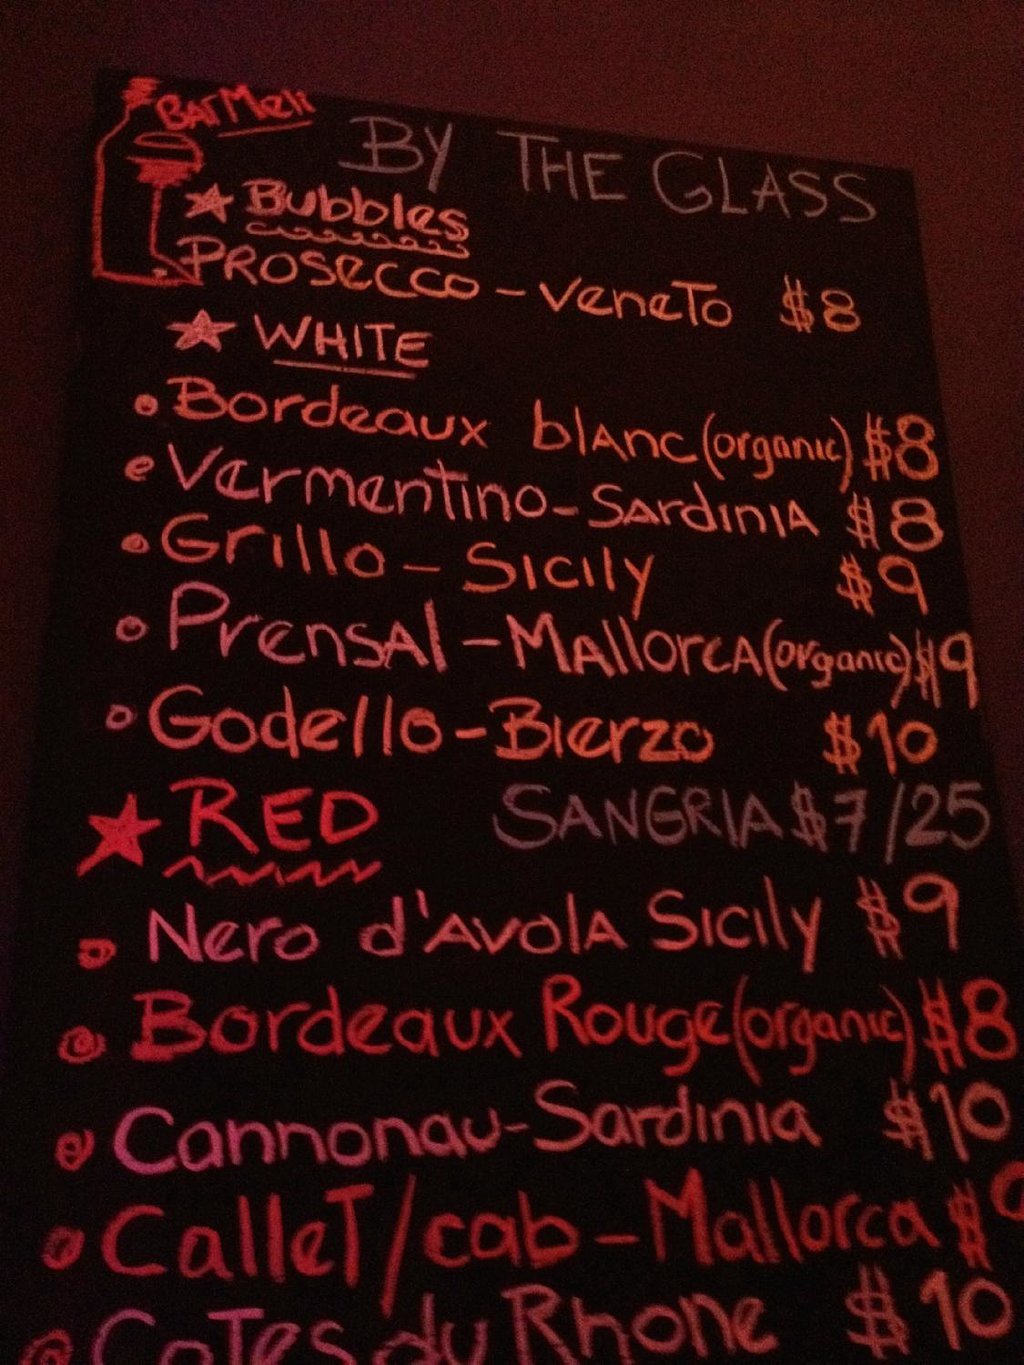 BarMeli
BY THE GLASS
Bubbles
PROSECCO - VeneTo $8
WHITE
Bordeaux blAnc (organic) $8
Vermentino - SArdiniA $8
Grillo - Sicily $9
PrensAl - MAllorcA (organic) $9
Godello - Bierzo $10
RED
SANGRIA $7/25
Nero d'AvolA Sicily $9
Bordeaux Rouge (organic) $8
Cannonau - Sardinia $10
CalleT/cab - Mallorca $
CoTes du Rhone $10